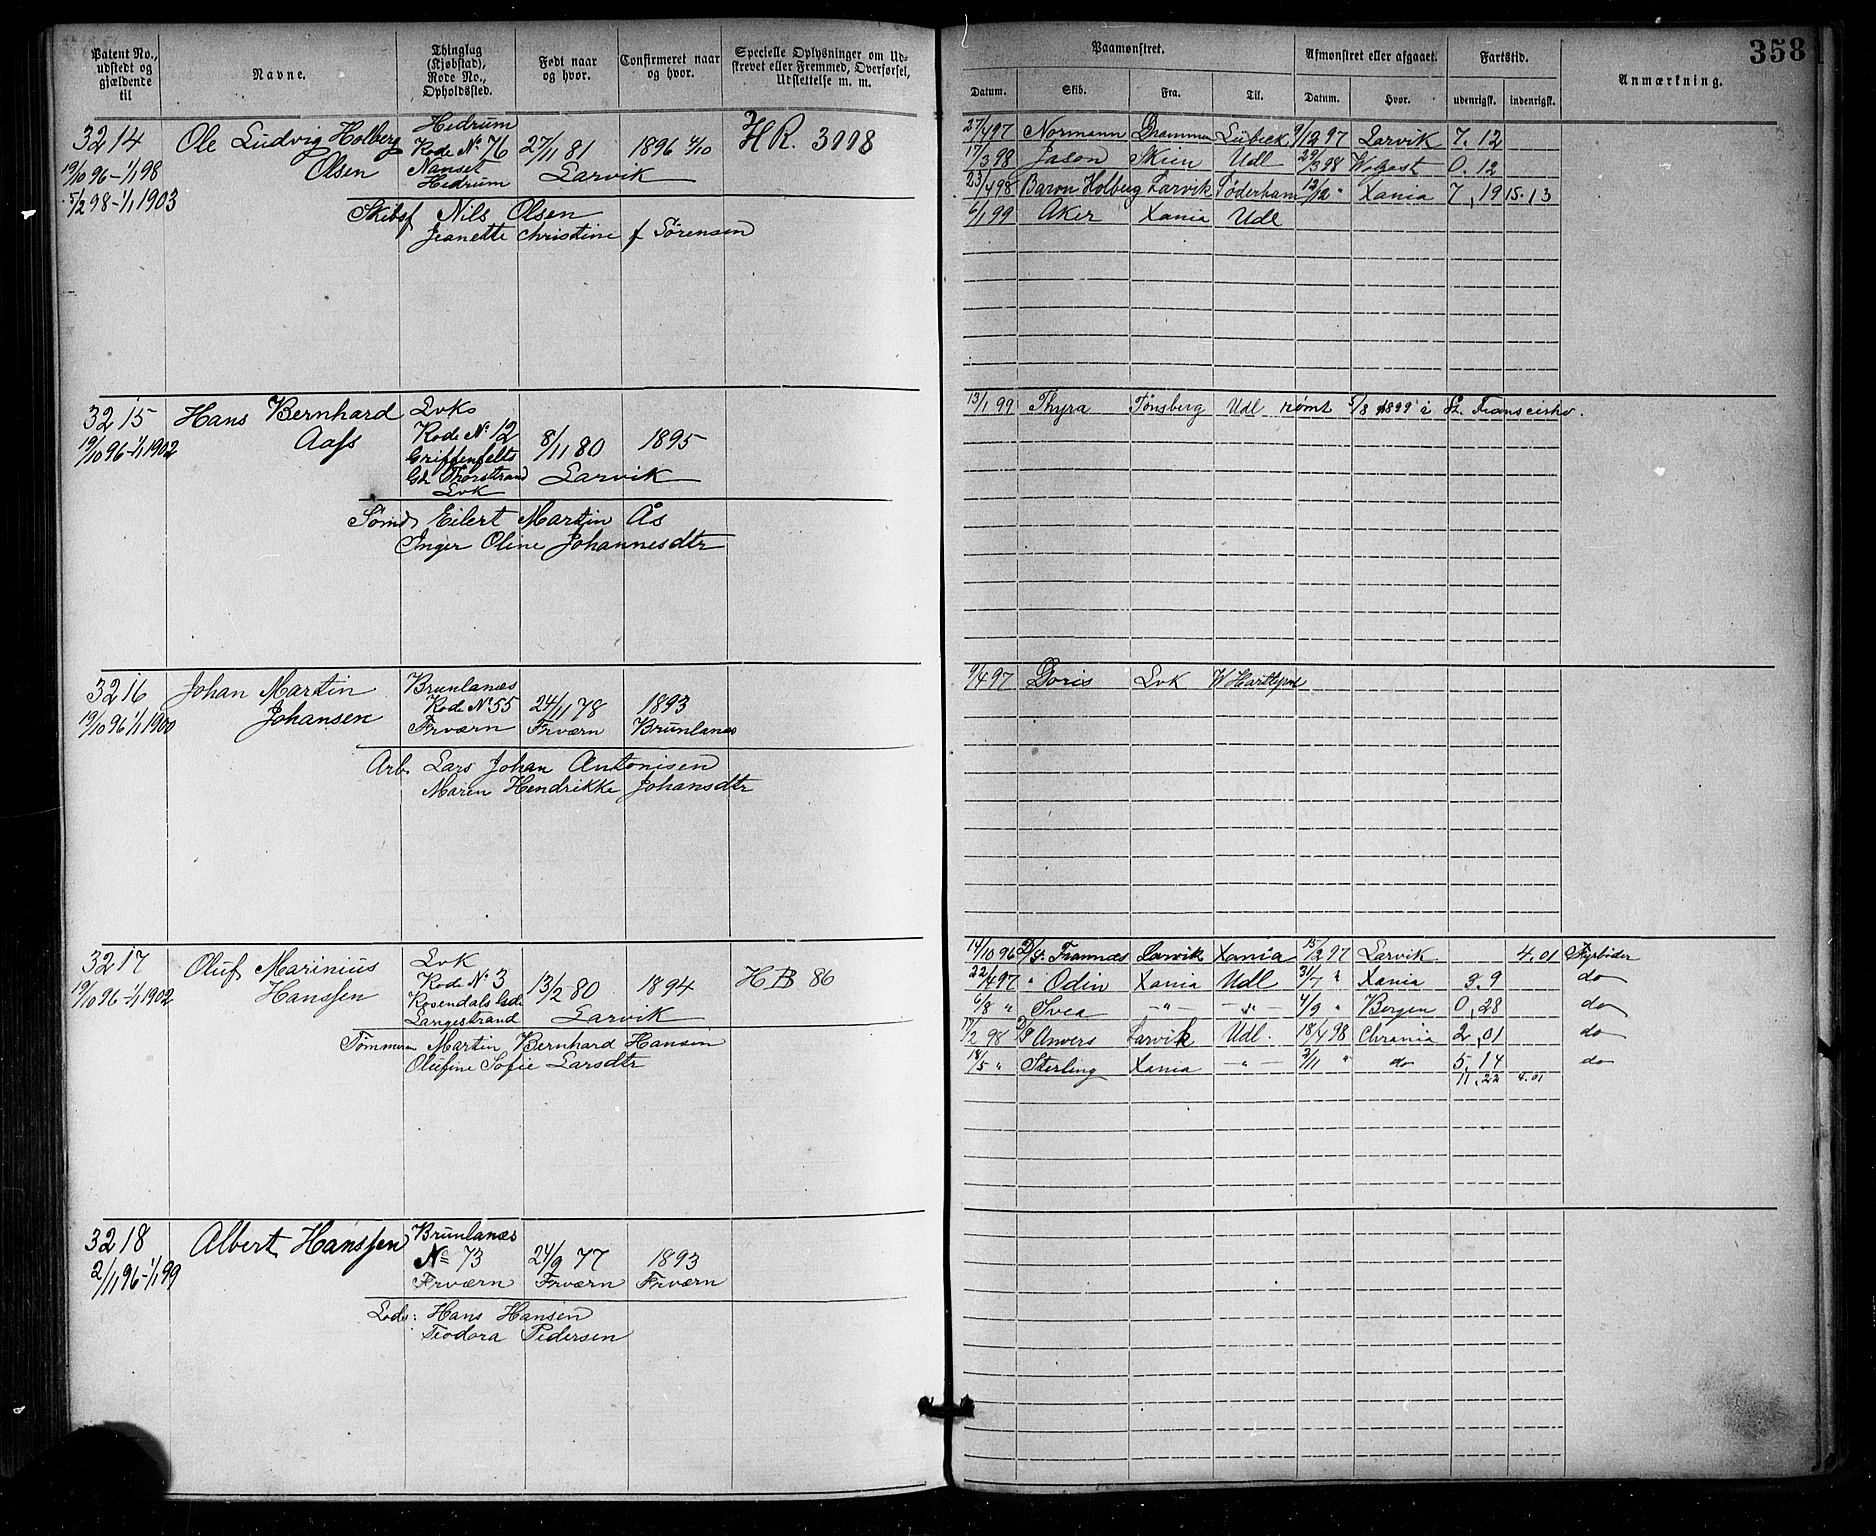 358
Patent No., udstedt og gjældende til
Navne.
Thinglag (Kjøbstad), Rode No., Opholdssted.
Født naar og hvor.
Confirmeret naar og hvor.
Specielle Oplysninger om Udskrevet eller Fremmed, Overførsel, Udslettelse m. m.
Paamønstret.
Afmønstret eller afgaaet.
Fartstid.
Anmærkning.
Datum.
Skib.
Fra.
Til.
Datum.
Hvor.
udenrigsk.
indenrigsk.
3214
19/10 96-1/1 98
5/2 98-1/1 1903
Ole Ludvig Holberg
Olsen
Hedrum
Rode No. 76
Nanset
Hedrum
27/11 81
Larvik
1896 4/10
H R. 3008
Skibsf Nils Olsen
Jeanette Christine f Sørensen
27/4 97 Normann Drammen Lübeck 9/12 97 Larvik 7. 12
17/3 98 Jason Skien Udl 29/3 98 Wolgast 0. 12
23/4 98 Baron Holberg Larvik Söderham 12/12 " Xania 7, 19 15. 13
6/1 99 Aker Xania Udl
3215
19/10 96-1/1 1902
Hans Bernhard
Aass
Lvks
Rode No. 12
Griffenfelts
Gd Thorstrand
Lvk
8/11 80
Larvik
1895
Sømd Eilert Martin Ås
Inger Oline Johannesdtr
13/1 99 Thyra Tønsberg Udl rømt 5/8 1899 i St. Franscisko.
3216
19/10 96 1/1 1900
Johan Martin
Johansen
Brunlanæs
Rode No 55
Frværn
24/11 78
Frværn
1893
Brunlanæs
Arb. Lars Johan Antonisen
Maren Hendrikke Johansdtr
9/4 97 Doris Lvk W Hartlpol
3217
19/10 96-1/1 1902
Oluf Marinius
Hanssen
Lvk
Rode No 3
Rosendals Gd.
Langestrand
13/2 80
Larvik
1894
H B 86
Tømmerm Martin Bernhard Hansen
Olufine Sofie Larsdtr
14/10 96 D/S. Framnæs Larvik Xania 15/2 97 Larvik 4. 01 Fyrbøder
22/4 97 " Odin Xania Udl 31/7 " Xania 3. 9 do
6/8 " Svea -"- -"- 4/9 " Bergen 0, 28 do
17/2 98 D/S Anvers Larvik Udl. 18/4 98 Chrania 2, 01 do
18/5 " Sterling Xania -"- 2/11 " do 5. 14 do
11. 22 4. 01
3218
2/11 96-1/1 99
Albert Hanssen
Brunlanæs
No 73
Frværn
24/9 77
Frværn
1893
Frværn
Lods: Hans Hansen
Teodora Pedersen